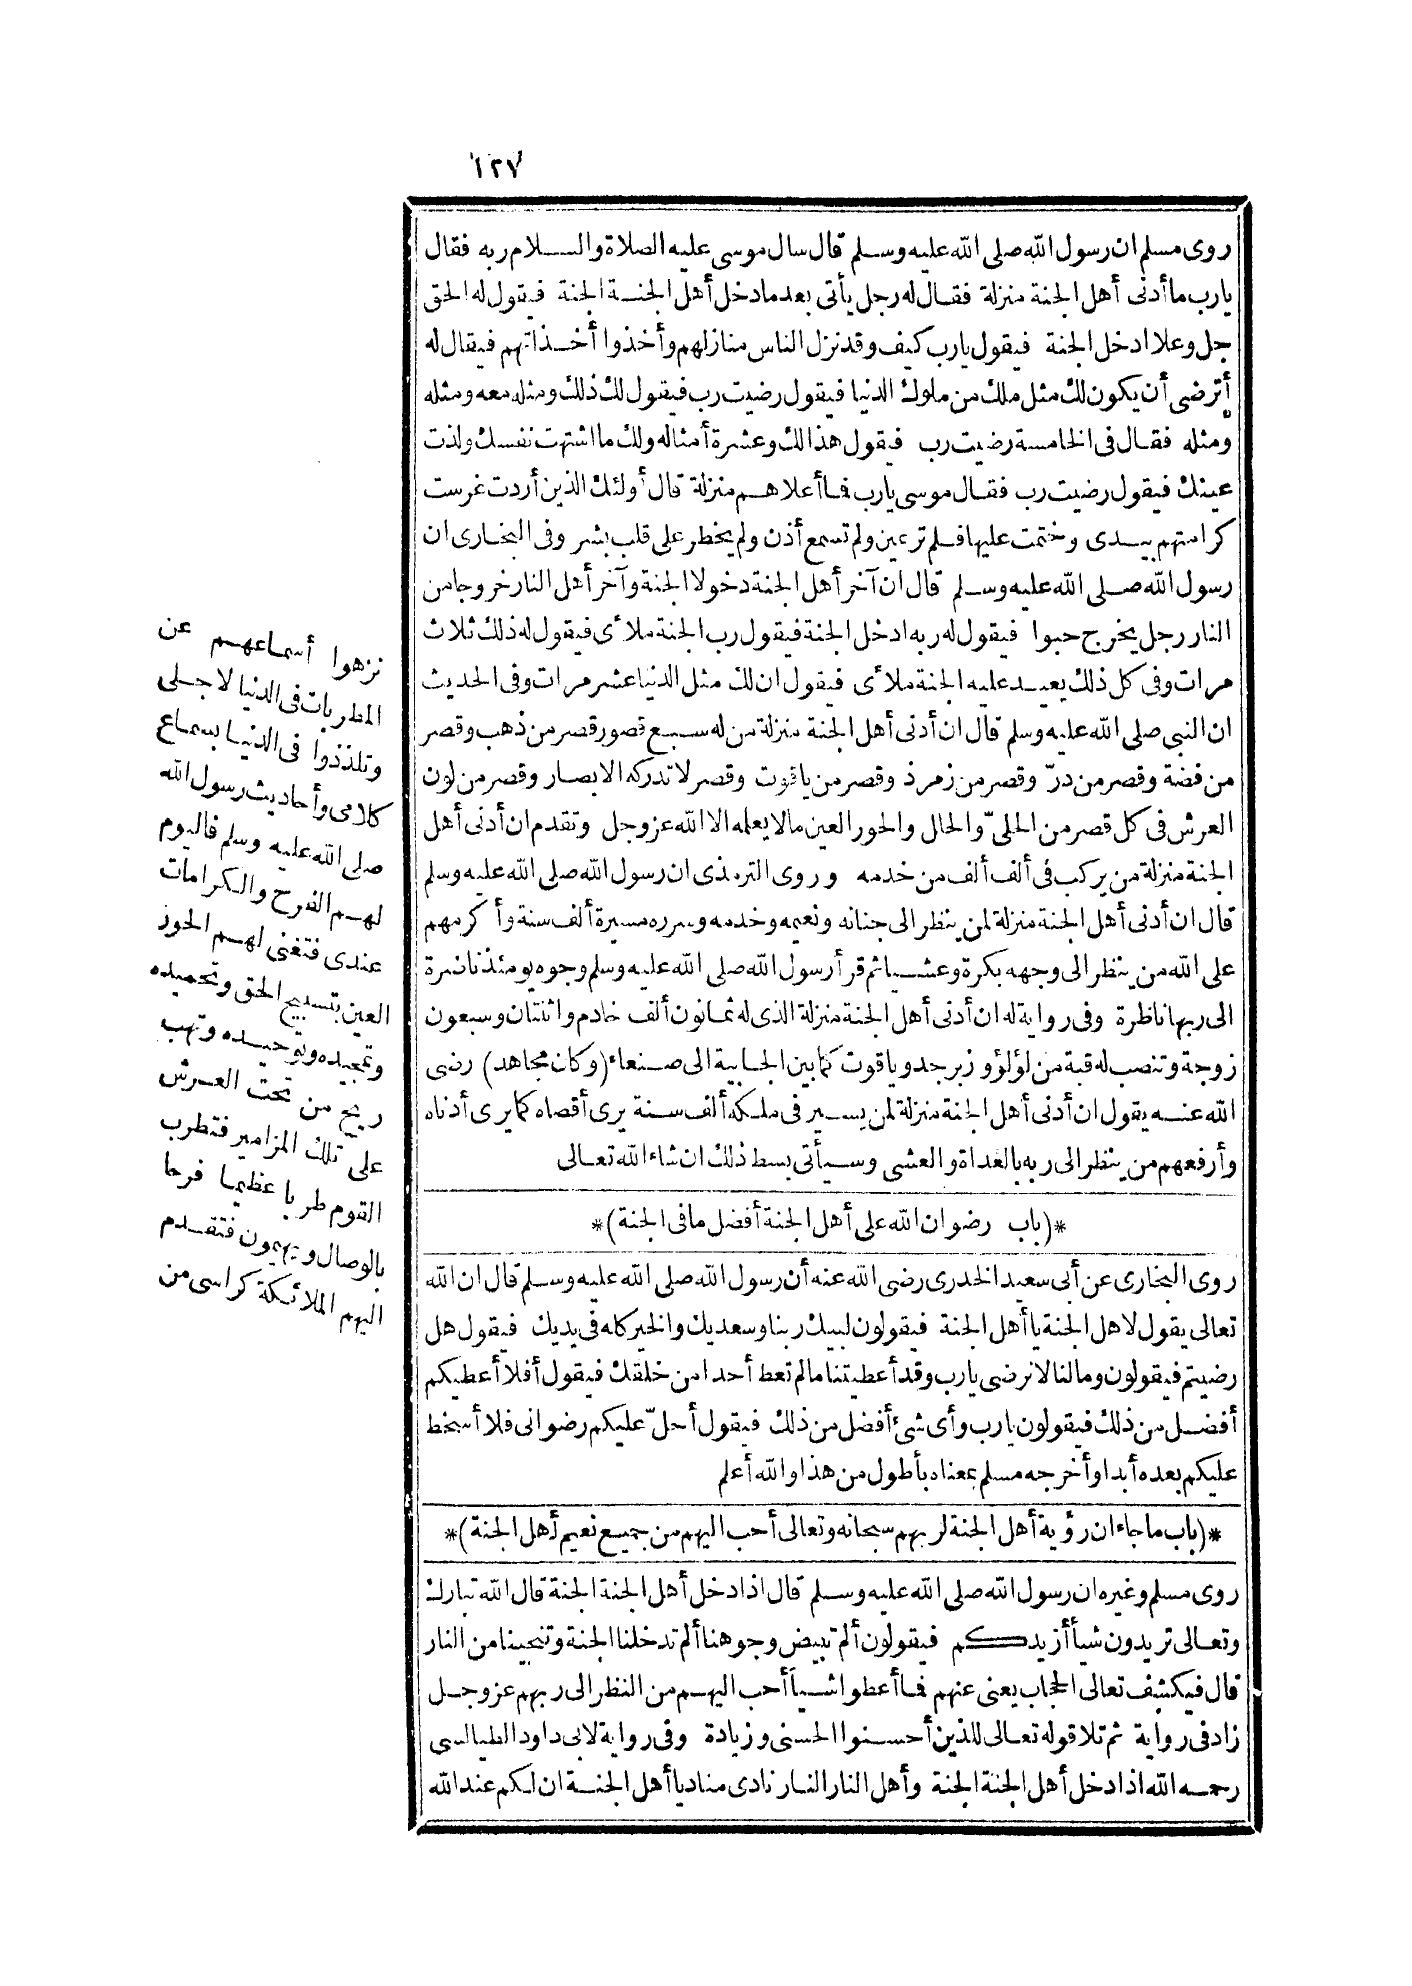 ١٢٧
روى مسلم ان رسول الله صلى الله عليه وسلم قال سال موسى عليه الصلاة والسلام ربه فقال
يارب ما أدنى أهل الجنة منزلة فقال له رجل يأتى بعد مادخل أهل الجنة الجنة فيقول له الحق
جل وعلا ادخل الجنة فيقول يارب كيف وقد نزل الناس منازلهم وأخذوا أخذاتهم فيقال له
أترضى أن يكون لك مثل ملك من ملوك الدنيا فيقول رضيت رب فيقول لك ذلك ومثله معه ومثله
ومثله فقال فى الخامسة رضيت رب فيقول هذا لك وعشرة أمثاله ولك ما اشتهت نفسك ولذت
عينك فيقول رضيت رب فقال موسى يارب فما أعلاهم منزلة قال أولئك الذين أردت غرست
كرامتهم بيدى وختمت عليها فلم ترعين ولم تسمع أذن ولم يخطر على قلب بشر وفى البخارى ان
رسول الله صلى الله عليه وسلم قال ان آخر أهل الجنة دخولا الجنة وآخر أهل النار خروجا من
النار رجل يخرج حبوا فيقول له ربه ادخل الجنة فيقول رب الجنة ملأى فيقول له ذلك ثلاث
مرات وفى كل ذلك يعيد عليه الجنة ملأى فيقول ان لك مثل الدنيا عشر مرات وفى الحديث
ان النبى صلى الله عليه وسلم قال ان أدنى أهل الجنة منزلة من له سبع قصور قصر من ذهب وقصر
من فضة وقصر من درّ وقصر من زمرذ وقصر من ياقوت وقصر لا تدركه الابصار وقصر من لون
العرش فى كل قصر من الحلىّ والحلل والحور العين مالا يعلمه الا الله عز وجل وتقدم ان أدنى أهل
الجنة منزلة من يركب فى ألف ألف من خدمه وروى الترمذى ان رسول الله صلى الله عليه وسلم
قال ان أدنى أهل الجنة منزلة لمن ينظر الى جنانه ونعيمه وخدمه وسرره مسيرة ألف سنة وأكرمهم
على الله من ينظر الى وجهه بكرة وعشيا ثم قرأ رسول الله صلى الله عليه وسلم وجوه يومئذ ناضرة
الى ربها ناظرة وفى رواية له ان أدنى أهل الجنة منزلة الذى له ثمانون ألف خادم واثنتان وسبعون
زوجة وتنصب له قبة من لؤلؤ وزبرجد وياقوت كما بين الجابية الى صنعاء (وكان مجاهد) رضى
الله عنه يقول ان أدنى أهل الجنة منزلة لمن يسير فى ملكه ألف سنة يرى أقصاه كما يرى أدناه
وأرفعهم من ينظر الى ربه بالغداة والعشى وسيأتى بسط ذلك ان شاء الله تعالى
*(باب رضوان الله على أهل الجنة أفضل ما فى الجنة)*
روى البخارى عن أبى سعيد الخدرى رضى الله عنه أن رسول الله صلى الله عليه وسلم قال ان الله
تعالى يقول لاهل الجنة يا أهل الجنة فيقولون لبيك ربنا وسعديك والخير كله فى يديك فيقول هل
رضيتم فيقولون ومالنا لا نرضى يارب وقد أعطيتنا مالم تعط أحدا من خلقك فيقول أفلا أعطيكم
أفضل من ذلك فيقولون يارب وأى شئ أفضل من ذلك فيقول أحلّ عليكم رضوانى فلا أسخط
عليكم بعده أبدا وأخرجه مسلم بمعناه بأطول من هذا والله أعلم
*(باب ما جاء ان رؤية أهل الجنة لربهم سبحانه وتعالى أحب اليهم من جميع نعيم أهل الجنة)*
روى مسلم وغيره ان رسول الله صلى الله عليه وسلم قال اذا دخل أهل الجنة الجنة قال الله تبارك
وتعالى تريدون شيأ أزيدكم فيقولون ألم تبيض وجوهنا ألم تدخلنا الجنة وتنجينا من النار
قال فيكشف تعالى الحجاب يعنى عنهم فما أعطوا شيأ أحب اليهم من النظر الى ربهم عز وجل
زاد فى رواية ثم تلا قوله تعالى للذين أحسنوا الحسنى وزيادة وفى رواية لابى داود الطيالسى
رحمه الله اذا دخل أهل الجنة الجنة وأهل النار النار نادى مناد يا أهل الجنة ان لكم عند الله
نزهوا أسماعهم عن
المطربات فى الدنيا لاجلى
وتلذذوا فى الدنيا بسماع
كلامى وأحاديث رسول الله
صلى الله عليه وسلم فاليوم
لهم الفرح والكرامات
عندى فتغنى لهم الحور
العين بتسبيح الحق وتحميده
وتمجيده وتوحيده وتهب
ريح من تحت العرش
على تلك المزامير فتطرب
القوم طربا عظيما فرحا
بالوصال ويهيمون فتقدم
اليهم الملائكة كراسى من